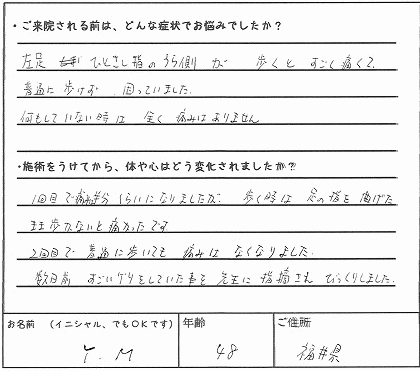 ・ご来院される前は、どんな症状でお悩みでしたか？
左足 ひとさし指のうら側が 歩くと すごく痛くて、
普通に歩けず 困っていました。
何もしていない時は 全く 痛みはありません
・施術をうけてから、体や心はどう変化されましたか？
1回目で痛み半分くらいになりましたが、歩く時は 足の指を曲げた
まま歩かないと痛かったです
2回目で普通に歩いても 痛みは なくなりました。
数日前 すごいゲリをしていた事を 先生に 指摘され びっくりしました。
お名前 （イニシャル、でもＯＫです） 年齢 ご住所
Y.M 48 福井県